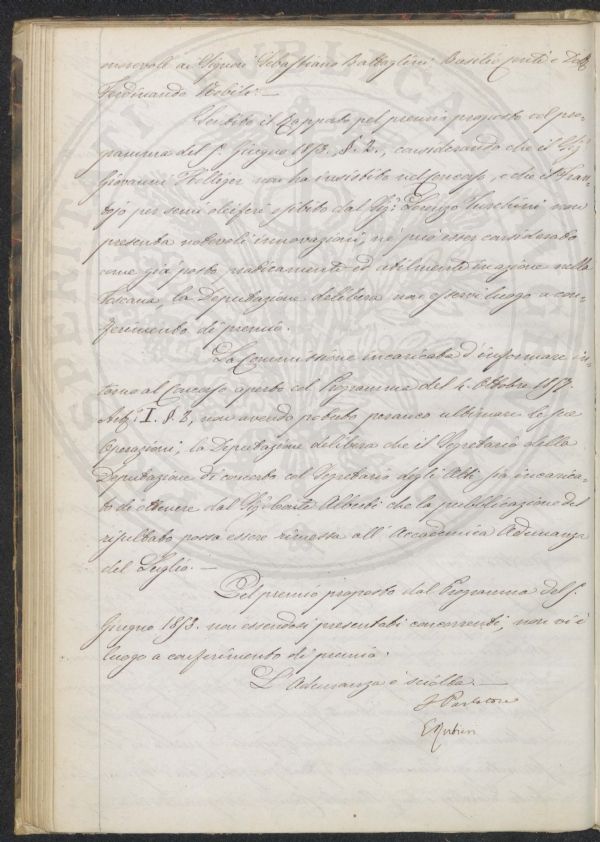 norevoli ai Signori Sebastiano Battaglini Basilio Conti e Dott.
Ferdinando Nobile. —
Sentito il Rapporto pel premio proposto col pro=
gramma del p.º Giugno 1853, §. 2., considerando che il Sig.
Giovanni non ha insistito nel Concorso, e che il Fran=
tojo per semi oleiferi esibito dal Sig.º Lorenzo Turchini non
presenta notevoli innovazioni, nè può esser considerato
come già posto praticamente ed utilmente in azione nella
Toscana la Deputazione delibera non esservi luogo a con=
ferimento di premio.
La Commissione incaricata d'informare in=
torno al Concorso aperto col Programma del 4. Ottobre 1857.
I. § 2, non avendo potuto peranco ultimare le sue
Operazioni, la Deputazione delibera che il Segretario della
Deputazione di concerto col Segretario degli Atti sia incarica=
to di ottenere dal Sig.º Conte Alberti che la pubblicazione del
risultato possa essere rimessa all'Accademica Adunanza
del Luglio. —
Pel premio proposto dal Programma del p.º
Giugno 1853. non essendosi presentati concorrenti, non vi è
luogo a conferimento di premio.
L'Adunanza è sciolta. —
F Parlatore
E Rubieri